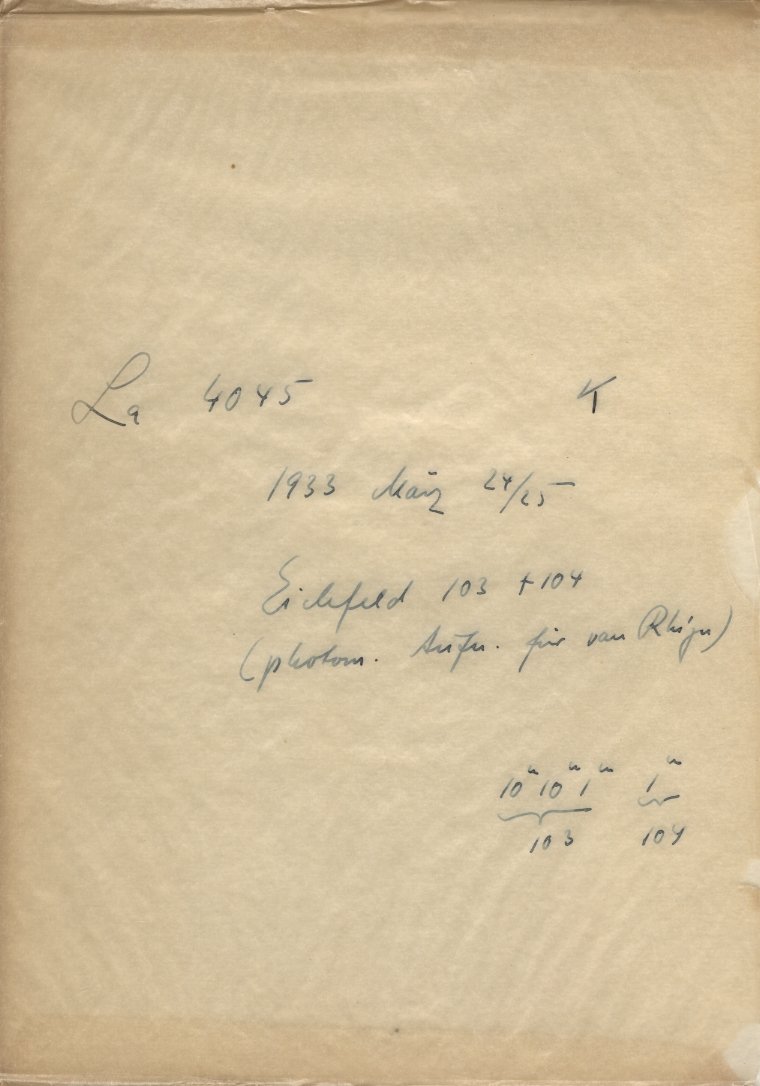 La 4045 K
1933 März 24/25
Eichfeld 103 + 104
(photom. Aufn. für van Rhijn)
10ᵐ 10ᵐ 1ᵐ 1ᵐ
103 104